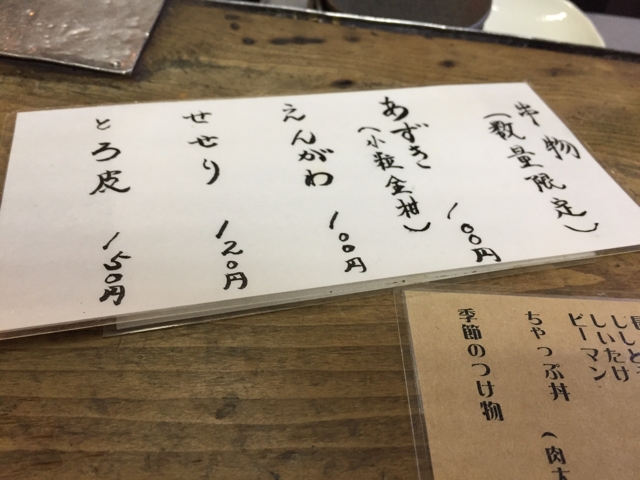 串物
(数量限定)
あずき 100円
(小粒金柑)
えんがわ 100円
せせり 120円
とろ皮 150円
しいたけ
ピーマン
ちゃっぷ丼 (肉大
季節のつけ物